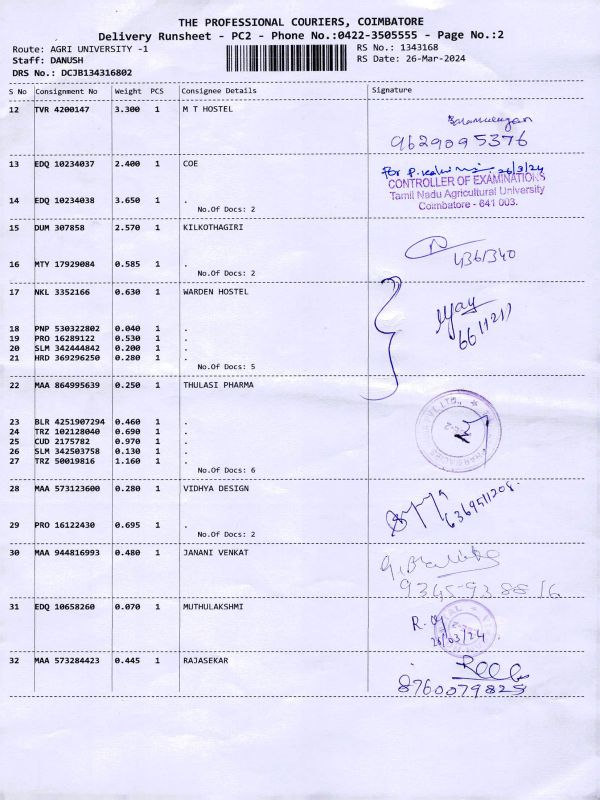 THE PROFESSIONAL COURIERS, COIMBATORE
Delivery Runsheet - PC2 - Phone No.:0422-3505555 - Page No.:2
Route: AGRI UNIVERSITY -1
RS No.: 1343168
Staff: DANUSH
RS Date: 26-Mar-2024
DRS No.: DCJB134316802
S No Consignment No Weight PCS Consignee Details Signature
12 TVR 4200147 3.300 1 M T HOSTEL
9629095376
13 EDQ 10234037 2.400 1 COE
for 26/3/24
CONTROLLER OF EXAMINATIONS
Tamil Nadu Agricultural University
Coimbatore - 641 003.
14 EDQ 10234038 3.650 1 .
No.Of Docs: 2
15 DUM 307858 2.570 1 KILKOTHAGIRI
4361340
16 MTY 17929084 0.585 1 .
No.Of Docs: 2
17 NKL 3352166 0.630 1 WARDEN HOSTEL
6611217
18 PNP 530322802 0.040 1 .
19 PRO 16289122 0.530 1 .
20 SLM 342444842 0.200 1 .
21 HRD 369296250 0.280 1 .
No.Of Docs: 5
22 MAA 864995639 0.250 1 THULASI PHARMA
23 BLR 4251907294 0.460 1 .
24 TRZ 102128040 0.690 1 .
25 CUD 2175782 0.970 1 .
26 SLM 342503758 0.130 1 .
27 TRZ 50019816 1.160 1 .
No.Of Docs: 6
28 MAA 573123600 0.280 1 VIDHYA DESIGN
6369511208.
29 PRO 16122430 0.695 1 .
No.Of Docs: 2
30 MAA 944816993 0.480 1 JANANI VENKAT
9345938816
31 EDQ 10658260 0.070 1 MUTHULAKSHMI
26/03/24.
32 MAA 573284423 0.445 1 RAJASEKAR
8760079825